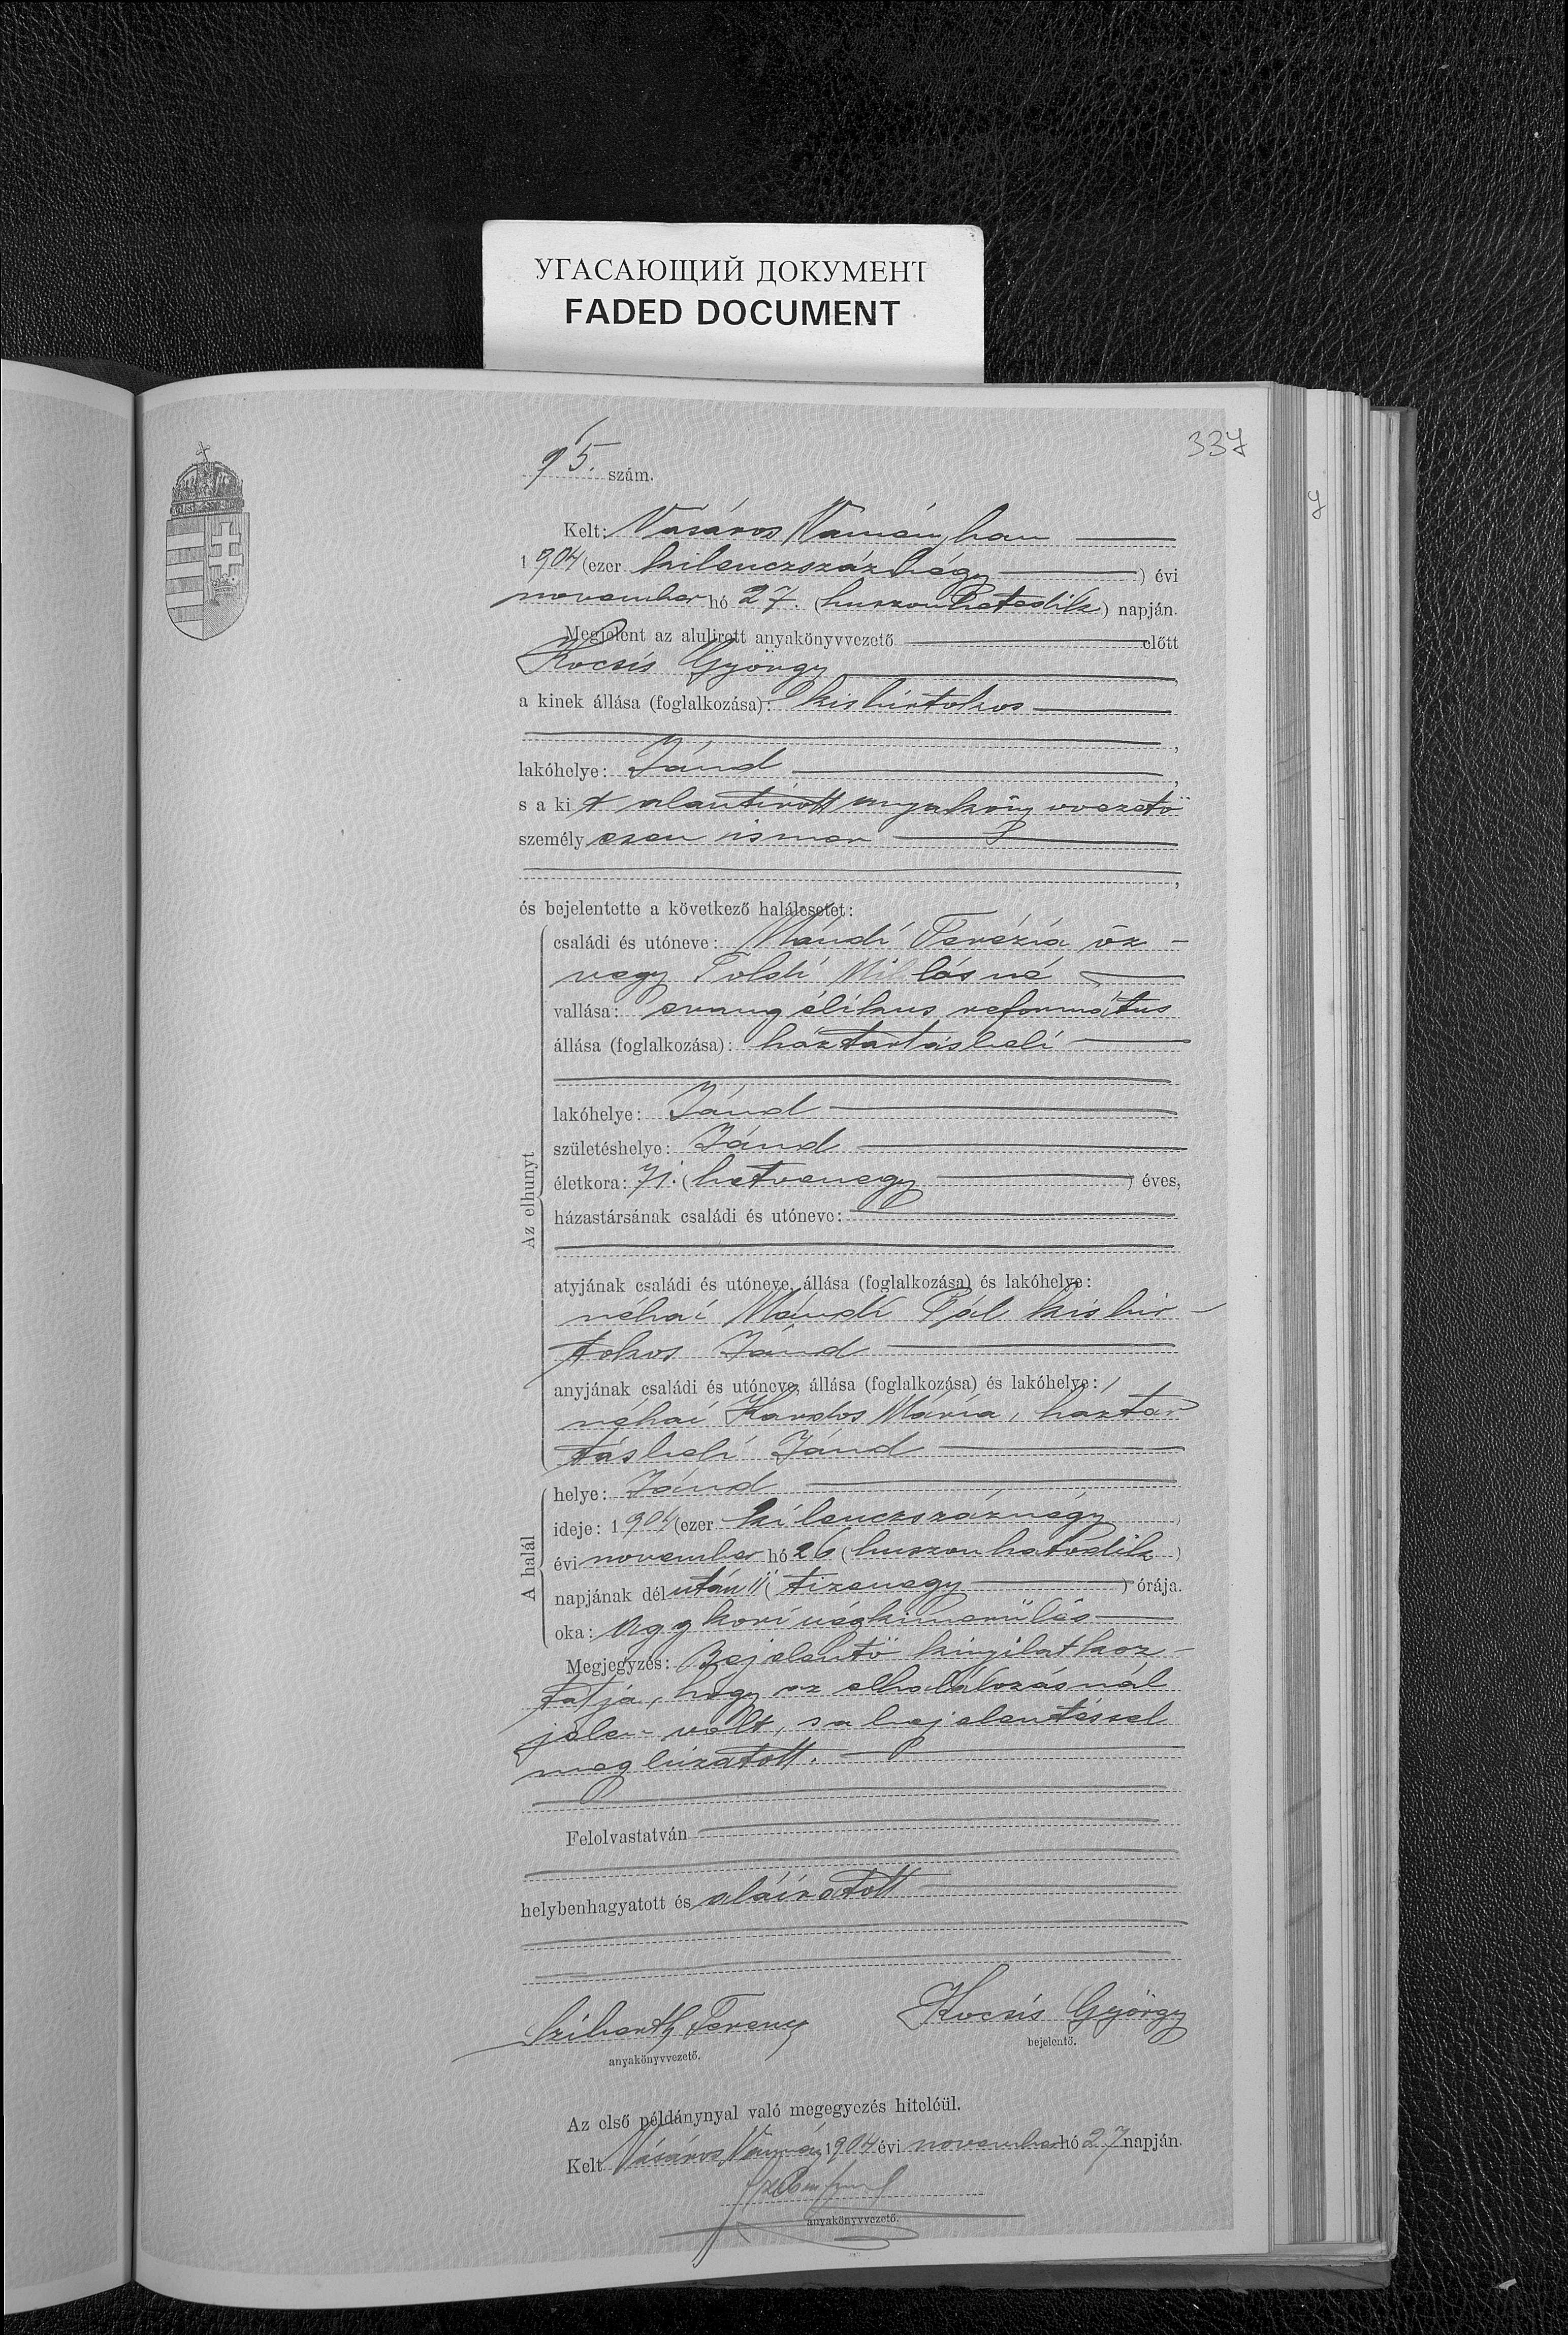 УГАСАЮЩИЙ ДОКУМЕНТ
FADED DOCUMENT
337
95. szám.
Kelt: Vásáros Naményban
1904 (ezer kilenczszáznégy) évi
november hó 27. (huszonhetedik) napján.
Megjelent az alulirott anyakönyvvezető előtt
Kocsis György,
a kinek állása (foglalkozása): kisbirtokos
,
lakóhelye: Jánd,
s a kit alantirott anyakönyvvezető
személyesen ismer
,
és bejelentette a következő halálesetet:
Az elhunyt
családi és utóneve: Mándi Terézia öz-
vegy Toldi Miklósné
vallása: evangélikus református
állása (foglalkozása): háztartásbeli
lakóhelye: Jánd
születéshelye: Jánd
életkora: 71. (hetvenegy) éves,
házastársának családi és utóneve:
atyjának családi és utóneve, állása (foglalkozása) és lakóhelye:
néhai Mándi Pál kisbir-
tokos Jánd
anyjának családi és utóneve, állása (foglalkozása) és lakóhelye:
néhai Kardos Mária, háztar
tásbeli Jánd
A halál
helye: Jánd
ideje: 1904 (ezer kilenczszáznégy)
évi november hó 26 (huszonhatodik)
napjának délután 11 (tizenegy) órája.
oka: aggkori végkimerülés
Megjegyzés: Bejelentő kinyilatkoz-
tatja, hogy az elhalálozásnál
jelen volt, s a bejelentéssel
megbizatott.
Felolvastatván
helybenhagyatott és aláiratott
Ferencz
Kocsis György
anyakönyvvezető.
bejelentő.
Az első példánynyal való megegyezés hiteléül.
Kelt Vásáros Namény 1904 évi november hó 27 napján.
anyakönyvvezető.